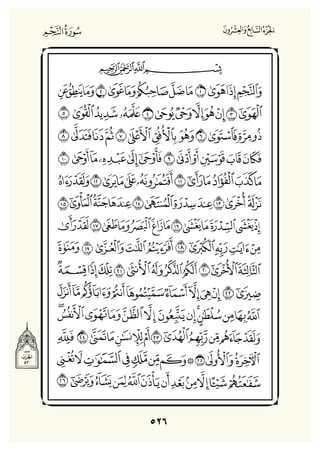 الجزء السابع والعشرون
سورة النجم
بسم الله الرحمن الرحيم
والنجم إذا هوى ١ ما ضل صاحبكم وما غوى ٢ وما ينطق عن
الهوى ٣ إن هو إلا وحي يوحى ٤ علمه شديد القوى ٥
ذو مرة فاستوى ٦ وهو بالأفق الأعلى ٧ ثم دنا فتدلى ٨
فكان قاب قوسين أو أدنى ٩ فأوحى إلى عبده ما أوحى ١٠
ما كذب الفؤاد ما رأى ١١ أفتمارونه على ما يرى ١٢ ولقد رءاه
نزلة أخرى ١٣ عند سدرة المنتهى ١٤ عندها جنة المأوى ١٥
إذ يغشى السدرة ما يغشى ١٦ ما زاغ البصر وما طغى ١٧ لقد رأى
من ءايات ربه الكبرى ١٨ أفرءيتم اللات والعزى ١٩ ومنوة
الثالثة الأخرى ٢٠ ألكم الذكر وله الأنثى ٢١ تلك إذا قسمة
ضيزى ٢٢ إن هي إلا أسماء سميتموها أنتم وءاباؤكم ما أنزل
الله بها من سلطان إن يتبعون إلا الظن وما تهوى الأنفس
ولقد جاءهم من ربهم الهدى ٢٣ أم للإنسان ما تمنى ٢٤ فلله
الآخرة والأولى ٢٥ ۞ وكم من ملك في السماوات لا تغني
شفاعتهم شيئا إلا من بعد أن يأذن الله لمن يشاء ويرضى ٢٦
الحزب
٥٣
٥٢٦